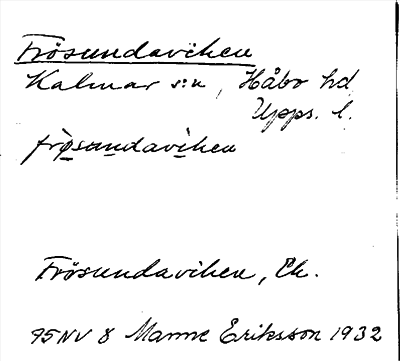 Frösundaviken
Kalmar s:n, Håbo hd
Upps. l.
frösundaviken
Frösundaviken, Ek.
75 NV 8 Manne Eriksson 1932